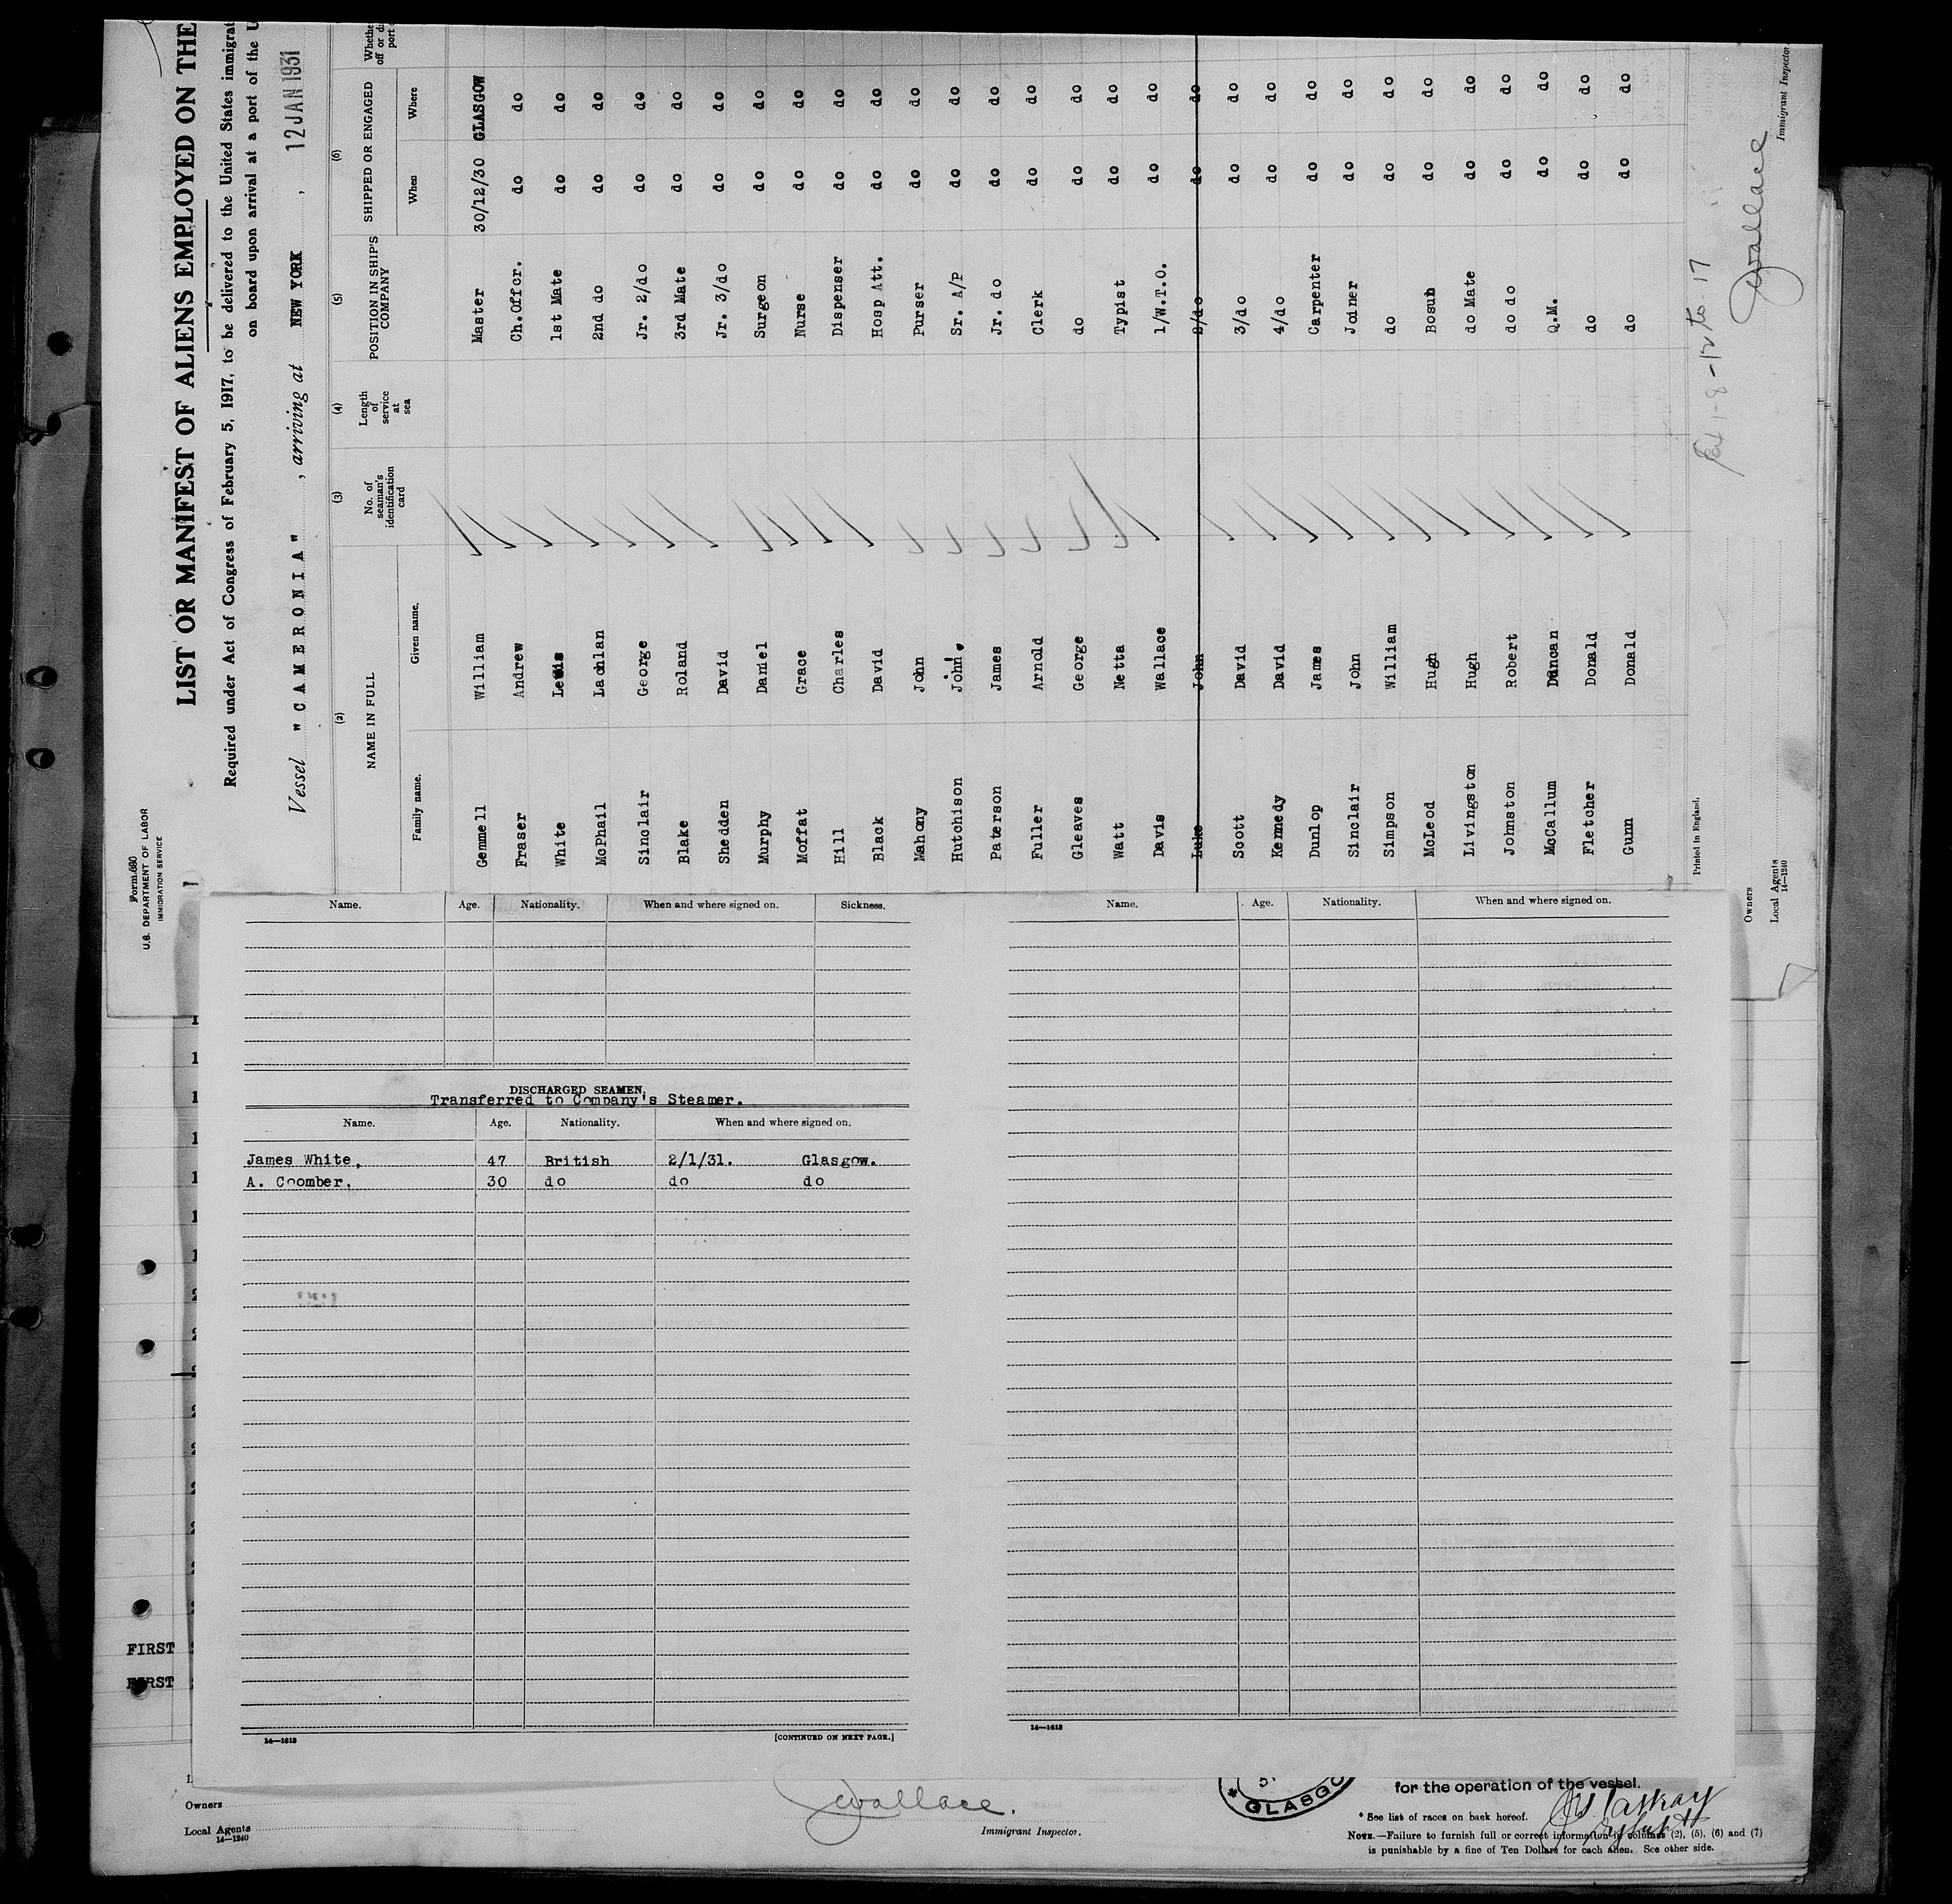 Form 680
U.S. DEPARTMENT OF LABOR
IMMIGRATION SERVICE
LIST OR MANIFEST OF ALIENS EMPLOYED ON THE
Required under Act of Congress of February 5, 1917, to be delivered to the United States immigrat
on board upon arrival at a port of the U
Vessel "CAMERONIA", arriving at NEW YORK, 12 JAN 1931
(2) (3) (4) (5) (6)
NAME IN FULL No. of seaman's identification card Length of service at sea POSITION IN SHIP'S COMPANY SHIPPED OR ENGAGED
Family name. Given name. When Where
Gemmell William Master 30/12/30 GLASGOW
Fraser Andrew Ch.Offcr. do do
White Lewis 1st Mate do do
McPhail Lachlan 2nd do do do
Sinclair George Jr. 2/do do do
Blake Roland 3rd Mate do do
Shedden David Jr. 3/do do do
Murphy Daniel Surgeon do do
Moffat Grace Nurse do do
Hill Charles Dispenser do do
Black David Hosp Att. do do
Mahony John Purser do do
Hutchison John. Sr. A/P do do
Paterson James Jr. do do do
Fuller Arnold Clerk do do
Gleaves George do do do
Watt Netta Typist do do
Davis Wallace 1/W.T.O. do do
Luke John 2/do do do
Scott David 3/do do do
Kennedy David 4/do do do
Dunlop James Carpenter do do
Sinclair John Joiner do do
Simpson William do do do
McLeod Hugh Bosun do do
Livingston Hugh do Mate do do
Johnston Robert do do do do
McCallum Duncan Q.M. do do
Fletcher Donald do do do
Gunn Donald do do do
Printed in England.
Owners
Local Agents
14—1240
Wallace
Immigrant Inspector
Name. Age. Nationality. When and where signed on. Sickness.
DISCHARGED SEAMEN.
Transferred to Company's Steamer.
Name. Age. Nationality. When and where signed on.
James White, 47 British 2/1/31. Glasgow.
A. Coomber, 30 do do do
14—1613
[CONTINUED ON NEXT PAGE.]
Name. Age. Nationality. When and where signed on.
14—1613
FIRST
FIRST
Owners
Local Agents
14—1240
Wallace.
Immigrant Inspector.
GLASGO
for the operation of the vessel.
* See list of races on back hereof.
NOTE.—Failure to furnish full or correct information in columns (2), (5), (6) and (7)
is punishable by a fine of Ten Dollars for each alien. See other side.